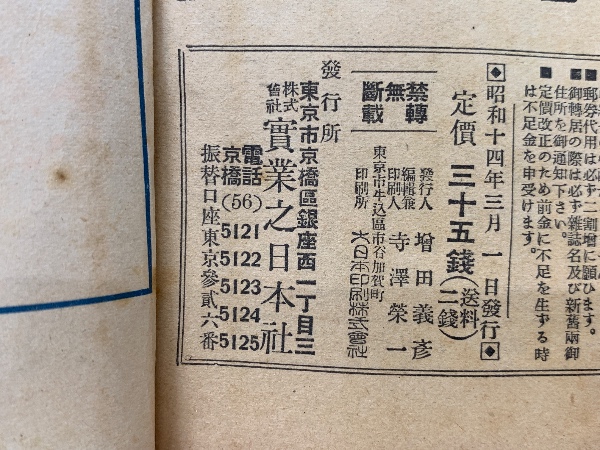 ■郵券代用は必ず二割増に願ひます。
■御轉居の際は必ず雜誌名及び新舊兩御
住所を御通知下さい。
■定價改正のため前金に不足を生ずる時
は不足金を申受けます。
◆昭和十四年三月一日發行◆
定價 三十五錢(送料二錢)
禁轉
無
斷載
發行人 增田義彥
編輯兼
印刷人 寺澤榮一
東京市牛込區市谷加賀町
印刷所 大日本印刷株式會社
發行所
東京市京橋區銀座西一丁目三
株式會社 實業之日本社
電話京橋(56)5121 5122 5123 5124 5125
振替口座東京參貳六番